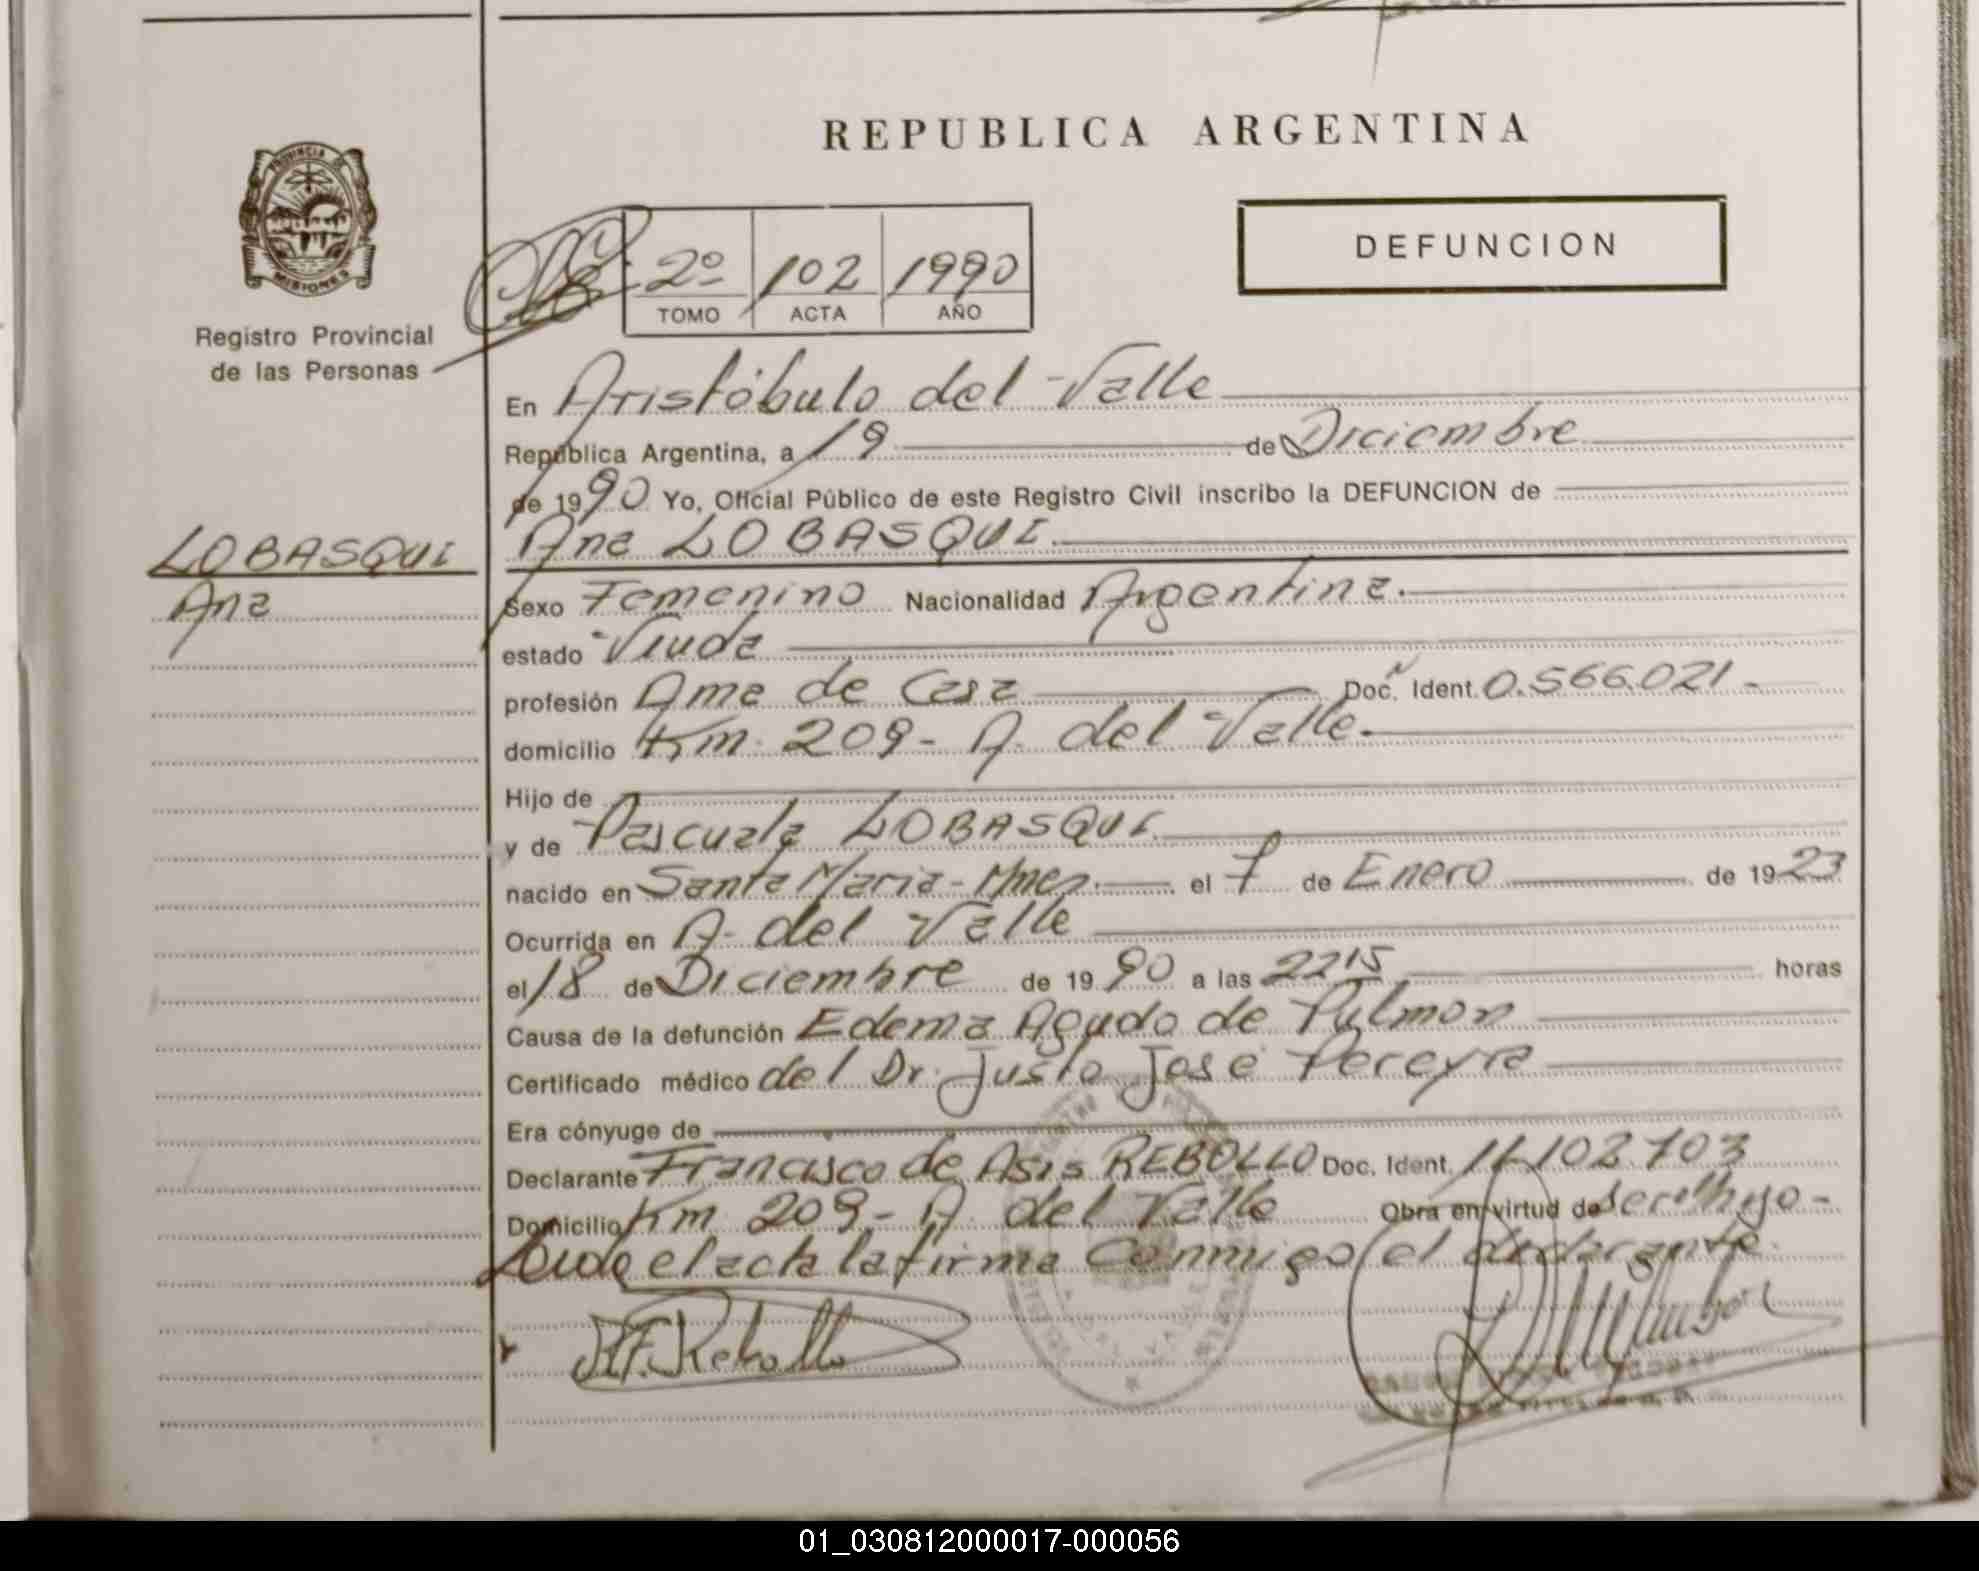 REPUBLICA ARGENTINA
PROVINCIA DE
MISIONES
Registro Provincial
de las Personas
2º 102 1990
TOMO ACTA AÑO
DEFUNCION
En Aristóbulo del Valle
República Argentina, a 19 de Diciembre
de 1990 Yo, Oficial Público de este Registro Civil inscribo la DEFUNCION de
LOBASQUI
Ana
Ana LOBASQUI.
Sexo Femenino Nacionalidad Argentina.
estado Viuda
profesión Ama de Casa Doc. Ident. 0.566.021-
domicilio Km. 209- A. del Valle.
Hijo de
y de Pascuala LOBASQUI.
nacido en Santa Maria-Mnes. el 7 de Enero de 1923
Ocurrida en A. del Valle
el 18 de Diciembre de 1990 a las 2215 horas
Causa de la defunción Edema Agudo de Pulmon
Certificado médico del Dr. Justo José Pereyra
Era cónyuge de
Declarante Francisco de Asis REBOLLO Doc. Ident. 11.102.703
Domicilio Km 209- A. del Valle Obra en virtud de ser Hijo-
Leida el acta la firma Conmigo el declarante.
F. Rebollo
01_030812000017-000056